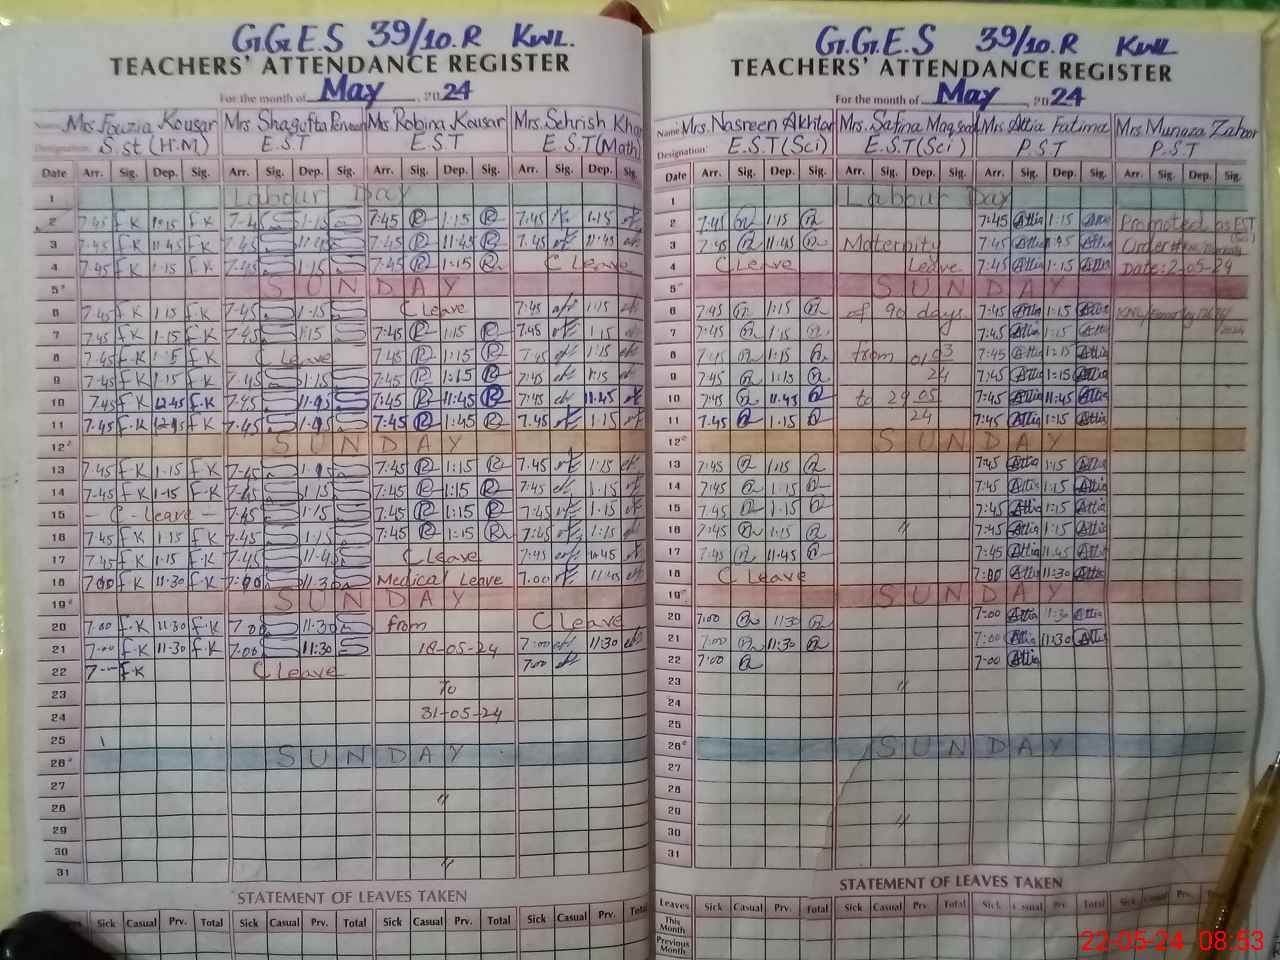 G.G.E.S 39/10.R KWL.
TEACHERS' ATTENDANCE REGISTER
For the month of May, 2024
Name: Mrs. Fouzia Kousar Mrs Shagufta Perveen Mrs Robina Kousar Mrs. Sehrish Khan
Designation: S.st (H.M) E.S.T E.S.T E.S.T (Math)
Date Arr. Sig. Dep. Sig. Arr. Sig. Dep. Sig. Arr. Sig. Dep. Sig. Arr. Sig. Dep. Sig.
1 Labour Day
2 7.45 f.K 1.15 f.K 7-4 1-15 7:45 R 1:15 R 7:45 1.15
3 7.45 f.K 11.45 f.K 7.45 11.45 7:45 R 11:45 R 7.45 11.45
4 7.45 f.K 1.15 f.K 7.45 1.15 7:45 R 1:15 R C Leave
5 SUNDAY
6 7.45 f.K 1.15 f.K 7.45 1.15 C Leave 7:45 1:15
7 7.45 f.K 1.15 f.K 7.45 1:15 7:45 R 1:15 R 7:45 1.15
8 7.45 f.K f.K C Leave 7:45 R 1:15 R 7.45 1:15
9 7.45 f.K 1.15 f.K 7.45 1.15 7:45 R 1:15 R 7:45 1.15
10 7.45 f.K 12.45 f.K 7.45 7:45 R 11:45 R 7.45 11.45
11 7.45 f.K f.K 7.45 7:45 R 1:45 R 7.45 1.15
12 SUNDAY
13 7.45 f.K 1.15 f.K 7.45 7:45 R 1:15 R 7.45 1:15
14 7.45 f.K 1.15 f.K 7.45 1.15 7:45 R 1:15 R 7:45 1.15
15 - C - Leave - 7.45 1:15 7:45 R 1:15 R 7.45 1.15
16 7.45 f.K 1.15 f.K 7.45 1.15 7:45 R 1:15 R 7.45 1.15
17 7.45 f.K 1.15 f.K 7.45 11.45 C Leave 7:45
18 7:00 f.K 11.30 f.K 7:00 11.30 Medical Leave 7.00 11.45
19 SUNDAY
20 7.00 f.K 11.30 f.K 7.00 11.30 from C Leave
21 7.00 f.K 11.30 f.K 7.00 11:30 18-05-24 7:00 11:30
22 7 f.K C Leave 7.00
23 To
24 31-05-24
25
26 SUNDAY
27
28 "
29
30
31 "
STATEMENT OF LEAVES TAKEN
Sick Casual Prv. Total Sick Casual Prv. Total Sick Casual Prv. Total Sick Casual Prv. Total
G.G.E.S 39/10.R KWL
TEACHERS' ATTENDANCE REGISTER
For the month of May, 2024
Name: Mrs. Nasreen Akhtar Mrs. Safina Maqsood Mrs. Attia Fatima Mrs. Munaza Zahoor
Designation: E.S.T (Sci) E.S.T (Sci) P.S.T P.S.T
Date Arr. Sig. Dep. Sig. Arr. Sig. Dep. Sig. Arr. Sig. Dep. Sig. Arr. Sig. Dep. Sig.
1 Labour Day
2 7:45 1:15 7:45 Attia 1:15 Attia Promoted as EST
3 7:45 11:45 Maternity 7:45 Attia Attia Order
4 C Leave Leave 7:45 Attia 1:15 Attia Date: 2-05-24
5 SUNDAY
6 7:45 1:15 of 90 days 7:45 Attia 1:15 Attia
7 7:45 1:15 7:45 Attia 1:15 Attia
8 7:45 1:15 from 01.03 7:45 Attia 1:15 Attia
9 7:45 1:15 24 7:45 Attia 1:15 Attia
10 7:45 11.45 to 29.05 7:45 Attia 11:45 Attia
11 7:45 1:15 24 7:45 Attia 1:15 Attia
12 SUNDAY
13 7:45 1:15 7:45 Attia 1:15 Attia
14 7:45 1:15 7:45 Attia 1:15 Attia
15 7:45 1:15 7:45 Attia 1:15 Attia
16 7:45 1:15 " 7:45 Attia 1:15 Attia
17 7:45 11.45 7:45 Attia 11.45 Attia
18 C Leave 7:00 Attia 11:30 Attia
19 SUNDAY
20 7:00 11:30 7:00 Attia 11:30 Attia
21 7:00 11:30 7:00 Attia 11:30 Attia
22 7:00 7:00 Attia
23 "
24
25
26 SUNDAY
27
28
29
30 "
31
STATEMENT OF LEAVES TAKEN
Leaves Sick Casual Prv. Total Sick Casual Prv. Total Sick Casual Prv. Total Sick Casual Prv. Total
This Month
Previous Month
22-05-24 08:53